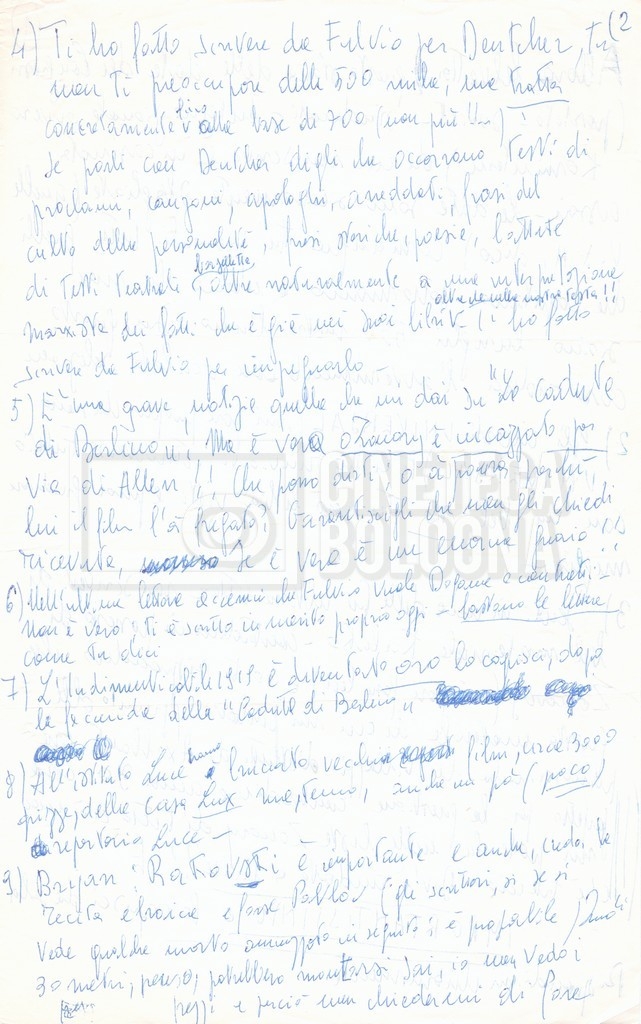 (2
4) Ti ho fatto scrivere da Fulvio per Deutcher, tu
non ti preoccupare delle 500 mila, ma tratta
concretamente fino alla base di 700 (non più!!...)!
Se parli con Deutcher digli che occorrono testi di
proclami, canzoni, apologhi, aneddoti, frasi del
culto della personalità, frasi storiche, poesie, battute
di testi teatrali, barzellette, oltre naturalmente a una interpretazione
marxista dei fatti che è già nei suoi libri oltre che nella nostra testa!! Ti ho fatto
scrivere da Fulvio per impegnarlo
5) È una grave notizia quella che mi dai su "La caduta
di Berlino". Ma è vero o è incazzato per
via di Allen!! Che passo disti, o
lui il film l'à fregato? Garantiscigli che non gli chiedi
ricevuta, se è vero è un enorme guaio!!
6) Nell'ultima lettera accenni che Fulvio vuole Dogane e contratti!!
Non è vero, ti è scritto in merito proprio oggi - bastano le lettere
come tu dici
7) L'Indimenticabile 1919 è diventato oro lo capisci, dopo
la faccenda della "Caduta di Berlino"
8) All'istituto Luce hanno bruciato vecchi film, circa 3000
pizze, della casa Lux ma, temo, anche un pò (poco)
repertorio Luce -
9) Bryan: Rakovski è importante e anche, credo, la
recita ebraica e forse Pavlov (gli scrittori, sì se si
vede qualche morto ammazzato in seguito sì è pagabile)
30 metri, penso, potrebbero mandarsi Sai, io non vedo i
pezzi e perciò non chiedermi di fare
CINETECA
BOLOGNA